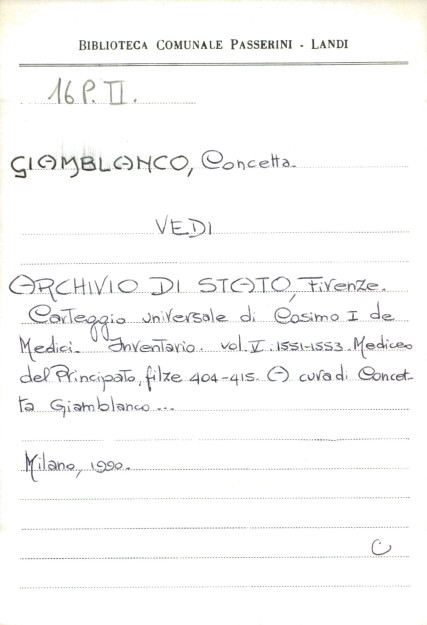 BIBLIOTECA COMUNALE PASSERINI - LANDI
16 P. II.
GIAMBLANCO, Concetta.
VEDI
ARCHIVIO DI STATO, Firenze.
Carteggio universale di Cosimo I de
Medici. Inventario. vol. V. 1551-1553. Mediceo
del Principato, filze 404-415. A cura di Concet-
ta Giamblanco...
Milano, 1990.
C